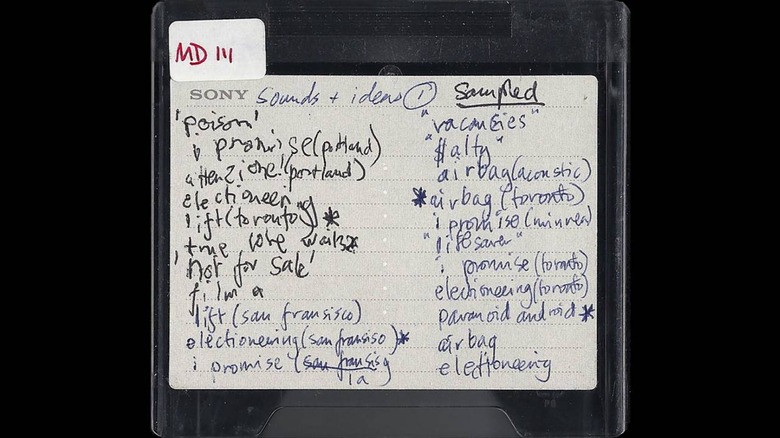 MD 111
SONY sounds + ideas ① sampled
'poison'
i promise (portland)
attenzione! (portland)
electioneering
lift (toronto) *
true love waits
'not for sale'
lift (san fransisco)
electioneering (san fransiso) *
i promise (san fransisc
la)
"vacancies"
"$alty"
airbag (acoustic)
* airbag (toronto)
i promise (minnea)
"lifesaver"
i promise (toronto)
electioneering (toronto)
paranoid android *
airbag
electioneering